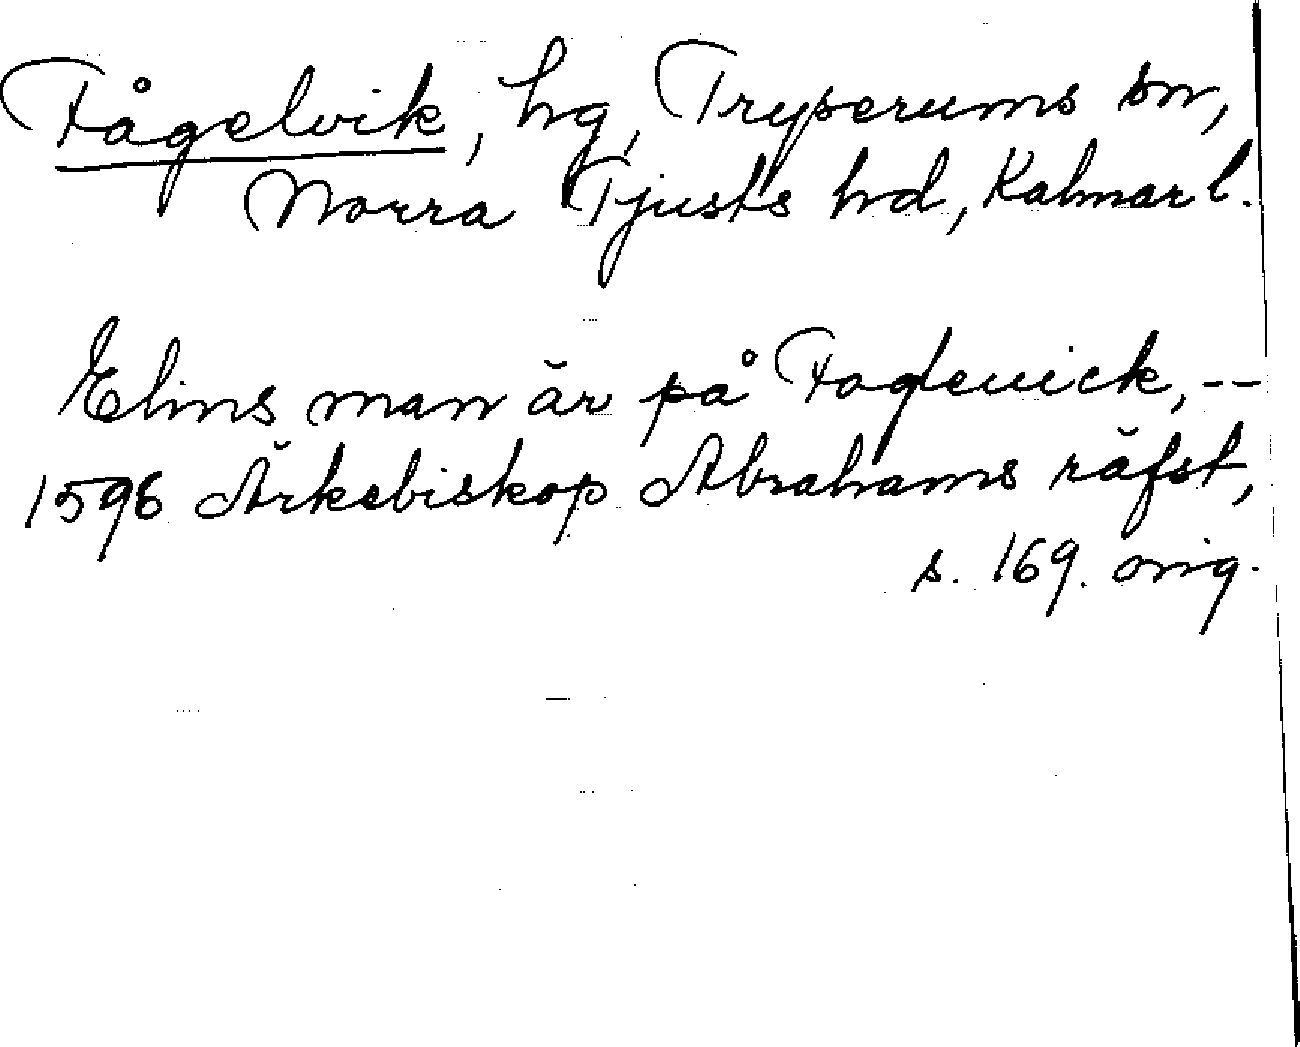 Fågelvik, hg, Tryserums sn,
Norra Tjusts hd, Kalmar l.
Elins man är på Foglevick, --
1596 Ärkebiskop Abrahams räfst,
s. 169. orig.